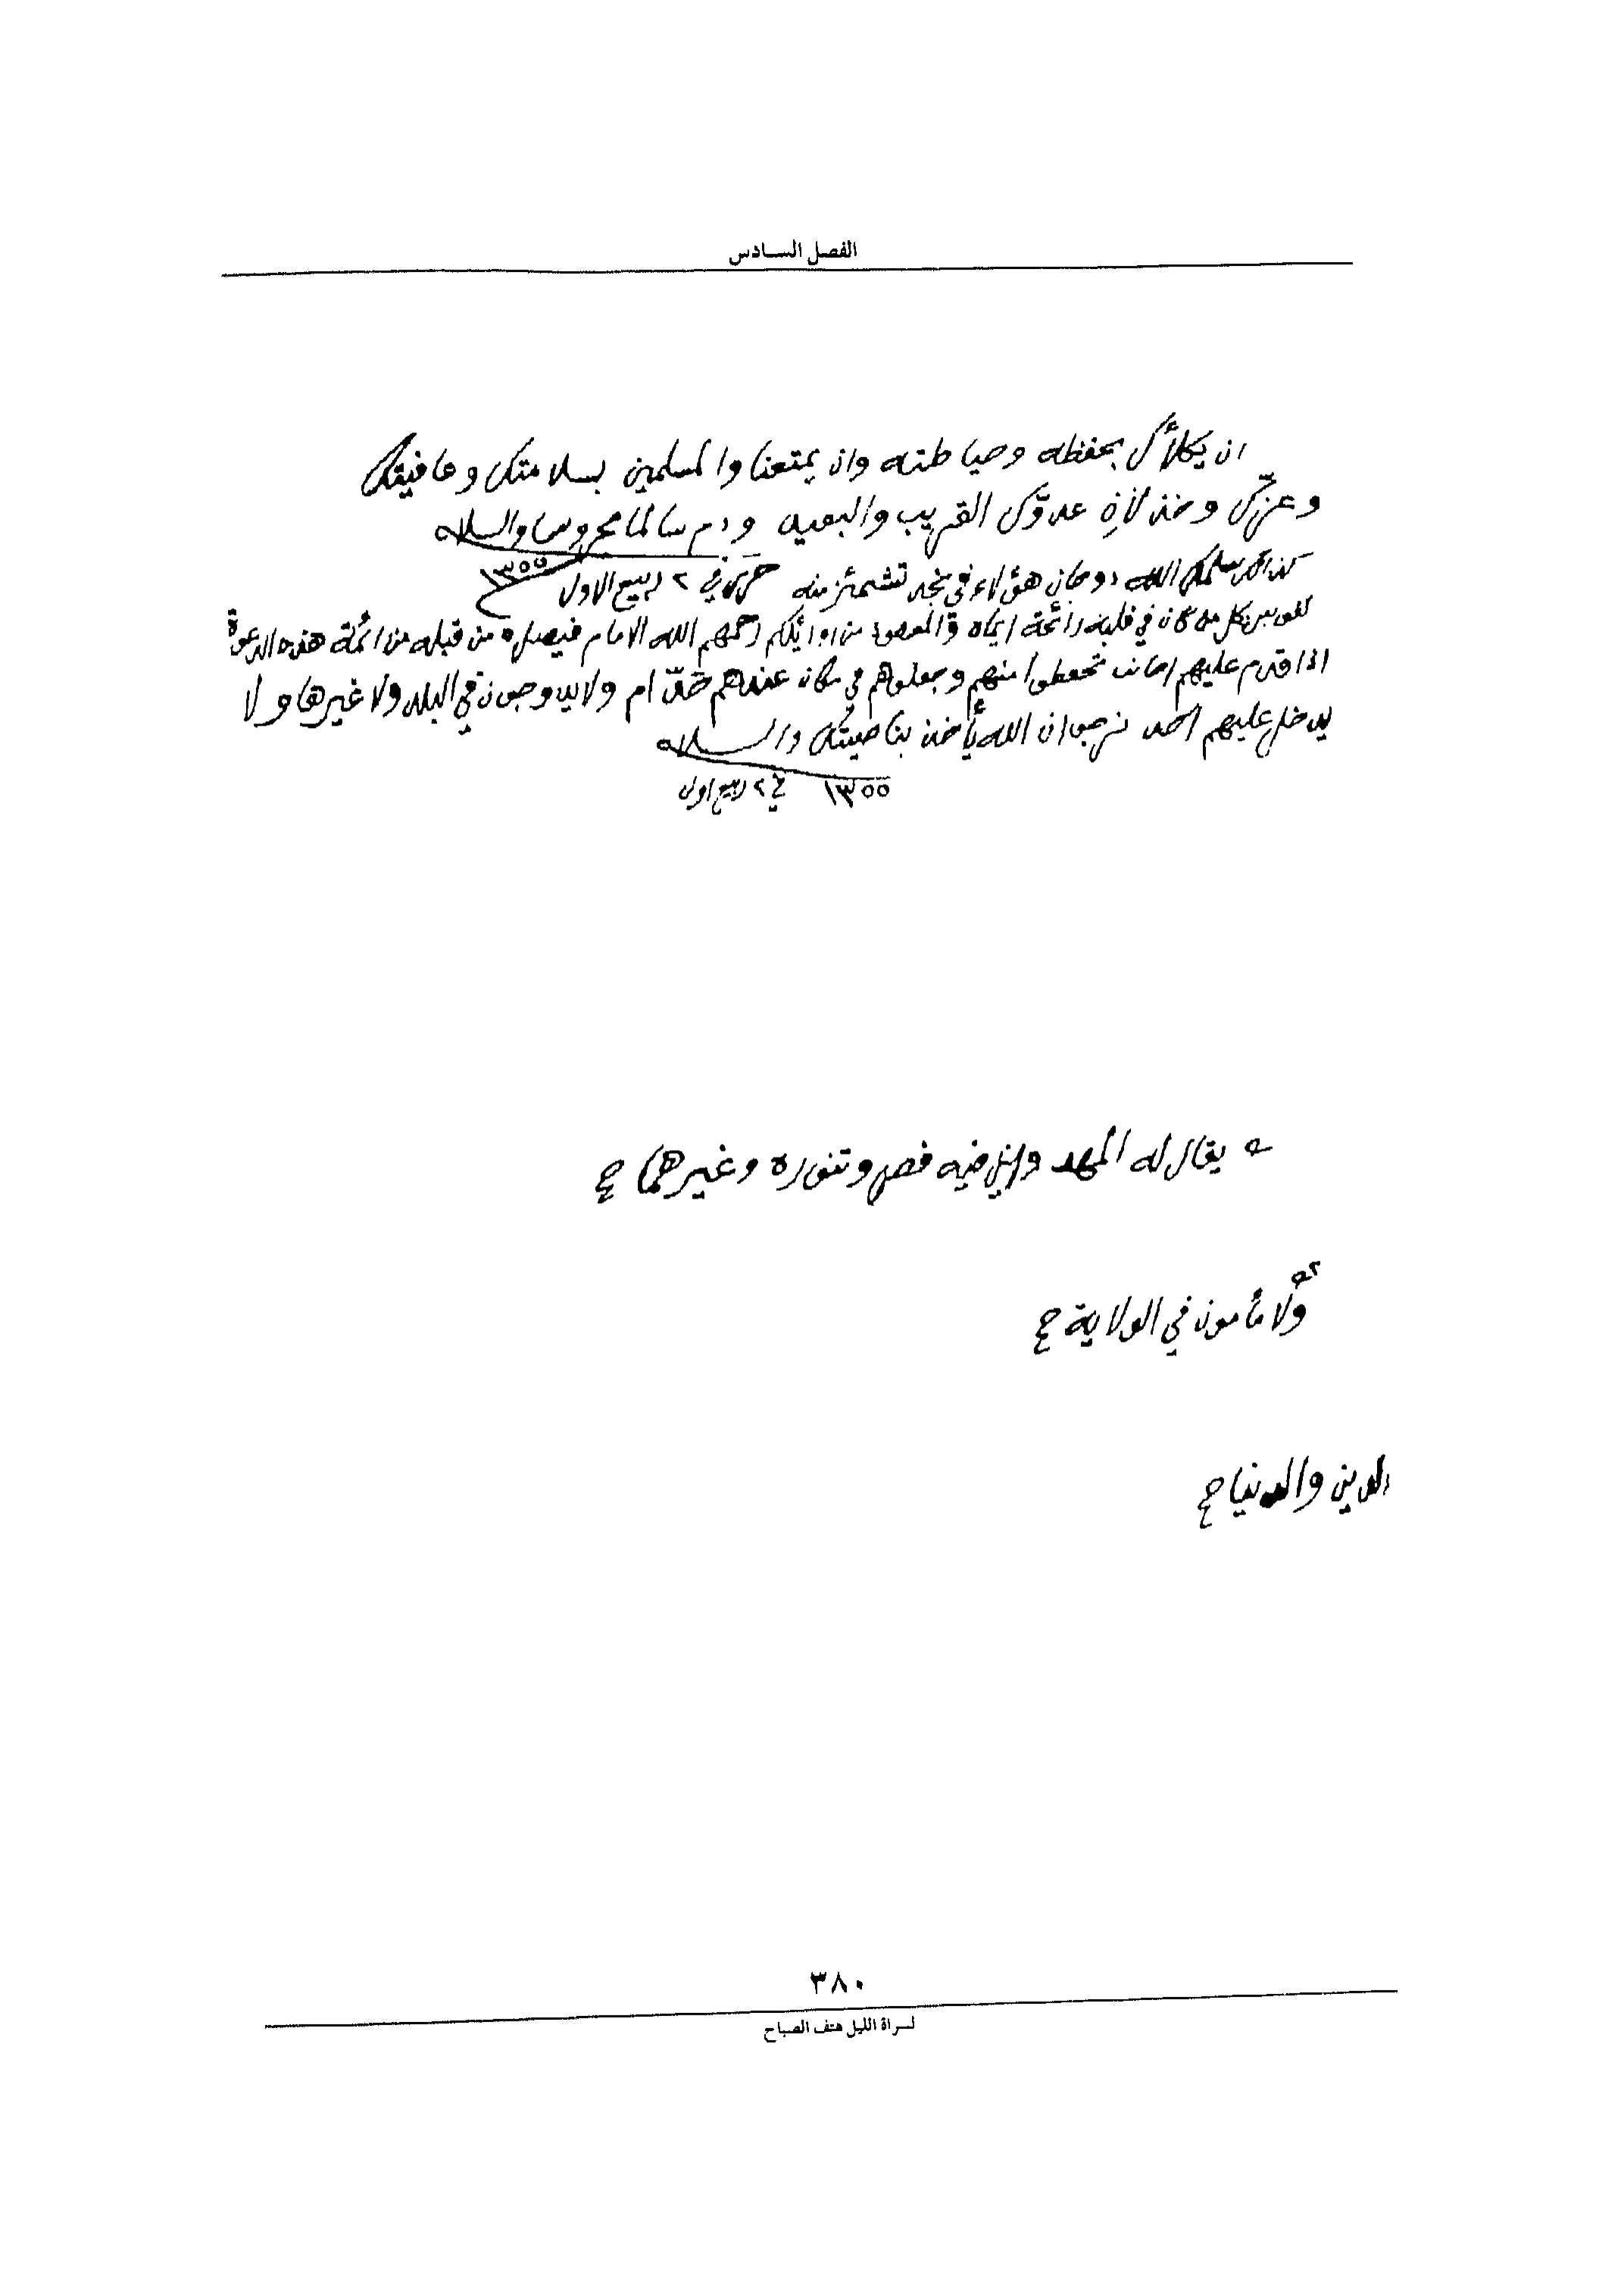 الفصل السادس
ان يكلأك بحفظه وحياطته وان يمتعنا والمسلمين بسلامتك وعافيتك
وعزّك وخذلان عدوّك القريب والبعيد ودم سالما محروسا والسلام
١٣٥٥
كذلك سلمك الله دوحان هؤلاء في نجد تشمئز منه حرر في ٢ ربيع الاول
نفوس كل من كان في قلبه رائحة ايمان والمعهود من اوائلكم رحمهم الله الامام فيصل ومن قبله من ائمة هذه الدعوة
اذا قدم عليهم تحفظوا منهم وجعلوهم في مكان عندهم خدّام ولا يدوجون في البلد ولا غيرها ولا
يدخل عليهم احد نرجو ان الله يأخذ بناصيتك والسلام
١٣٥٥ في ٢ ربيع اول
يقال له المهد وفيه وتنوره وغيرهما ح
ولا مأمون في الولاية ح
الدين والدنيا ح
٣٨٠
لسراة الليل هتف الصباح